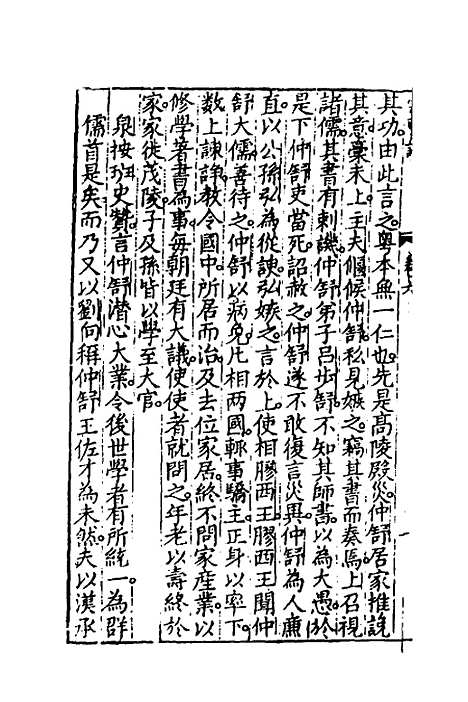 其功由此言之奥本無一仁也先是髙陵殿災仲舒居家推說
其意稾未上主夫偃候仲舒私見嫉之竊其書而奏焉上召視
諸儒其書有刺譏仲舒弟子吕步舒不知其師書以為大愚於
是下仲舒吏當死詔赦之仲舒遂不敢復言災異仲舒為人廉
直以公孫弘為從諛弘嫉之言於上使相膠西王膠西王聞仲
舒大儒善待之仲舒以病免凡相两國輒事驕主正身以率下
数上諌諍教令國中所居而治及去位家居終不問家産業以
修學著書為事每朝廷有大議使使者就問之年老以壽終於
家家徙茂陵子及孫皆以學至大官
泉按班史贊言仲舒潜心大業令後世學者有所統一為群
儒首是矣而乃又以劉向稱仲舒王佐才為未然夫以漢承